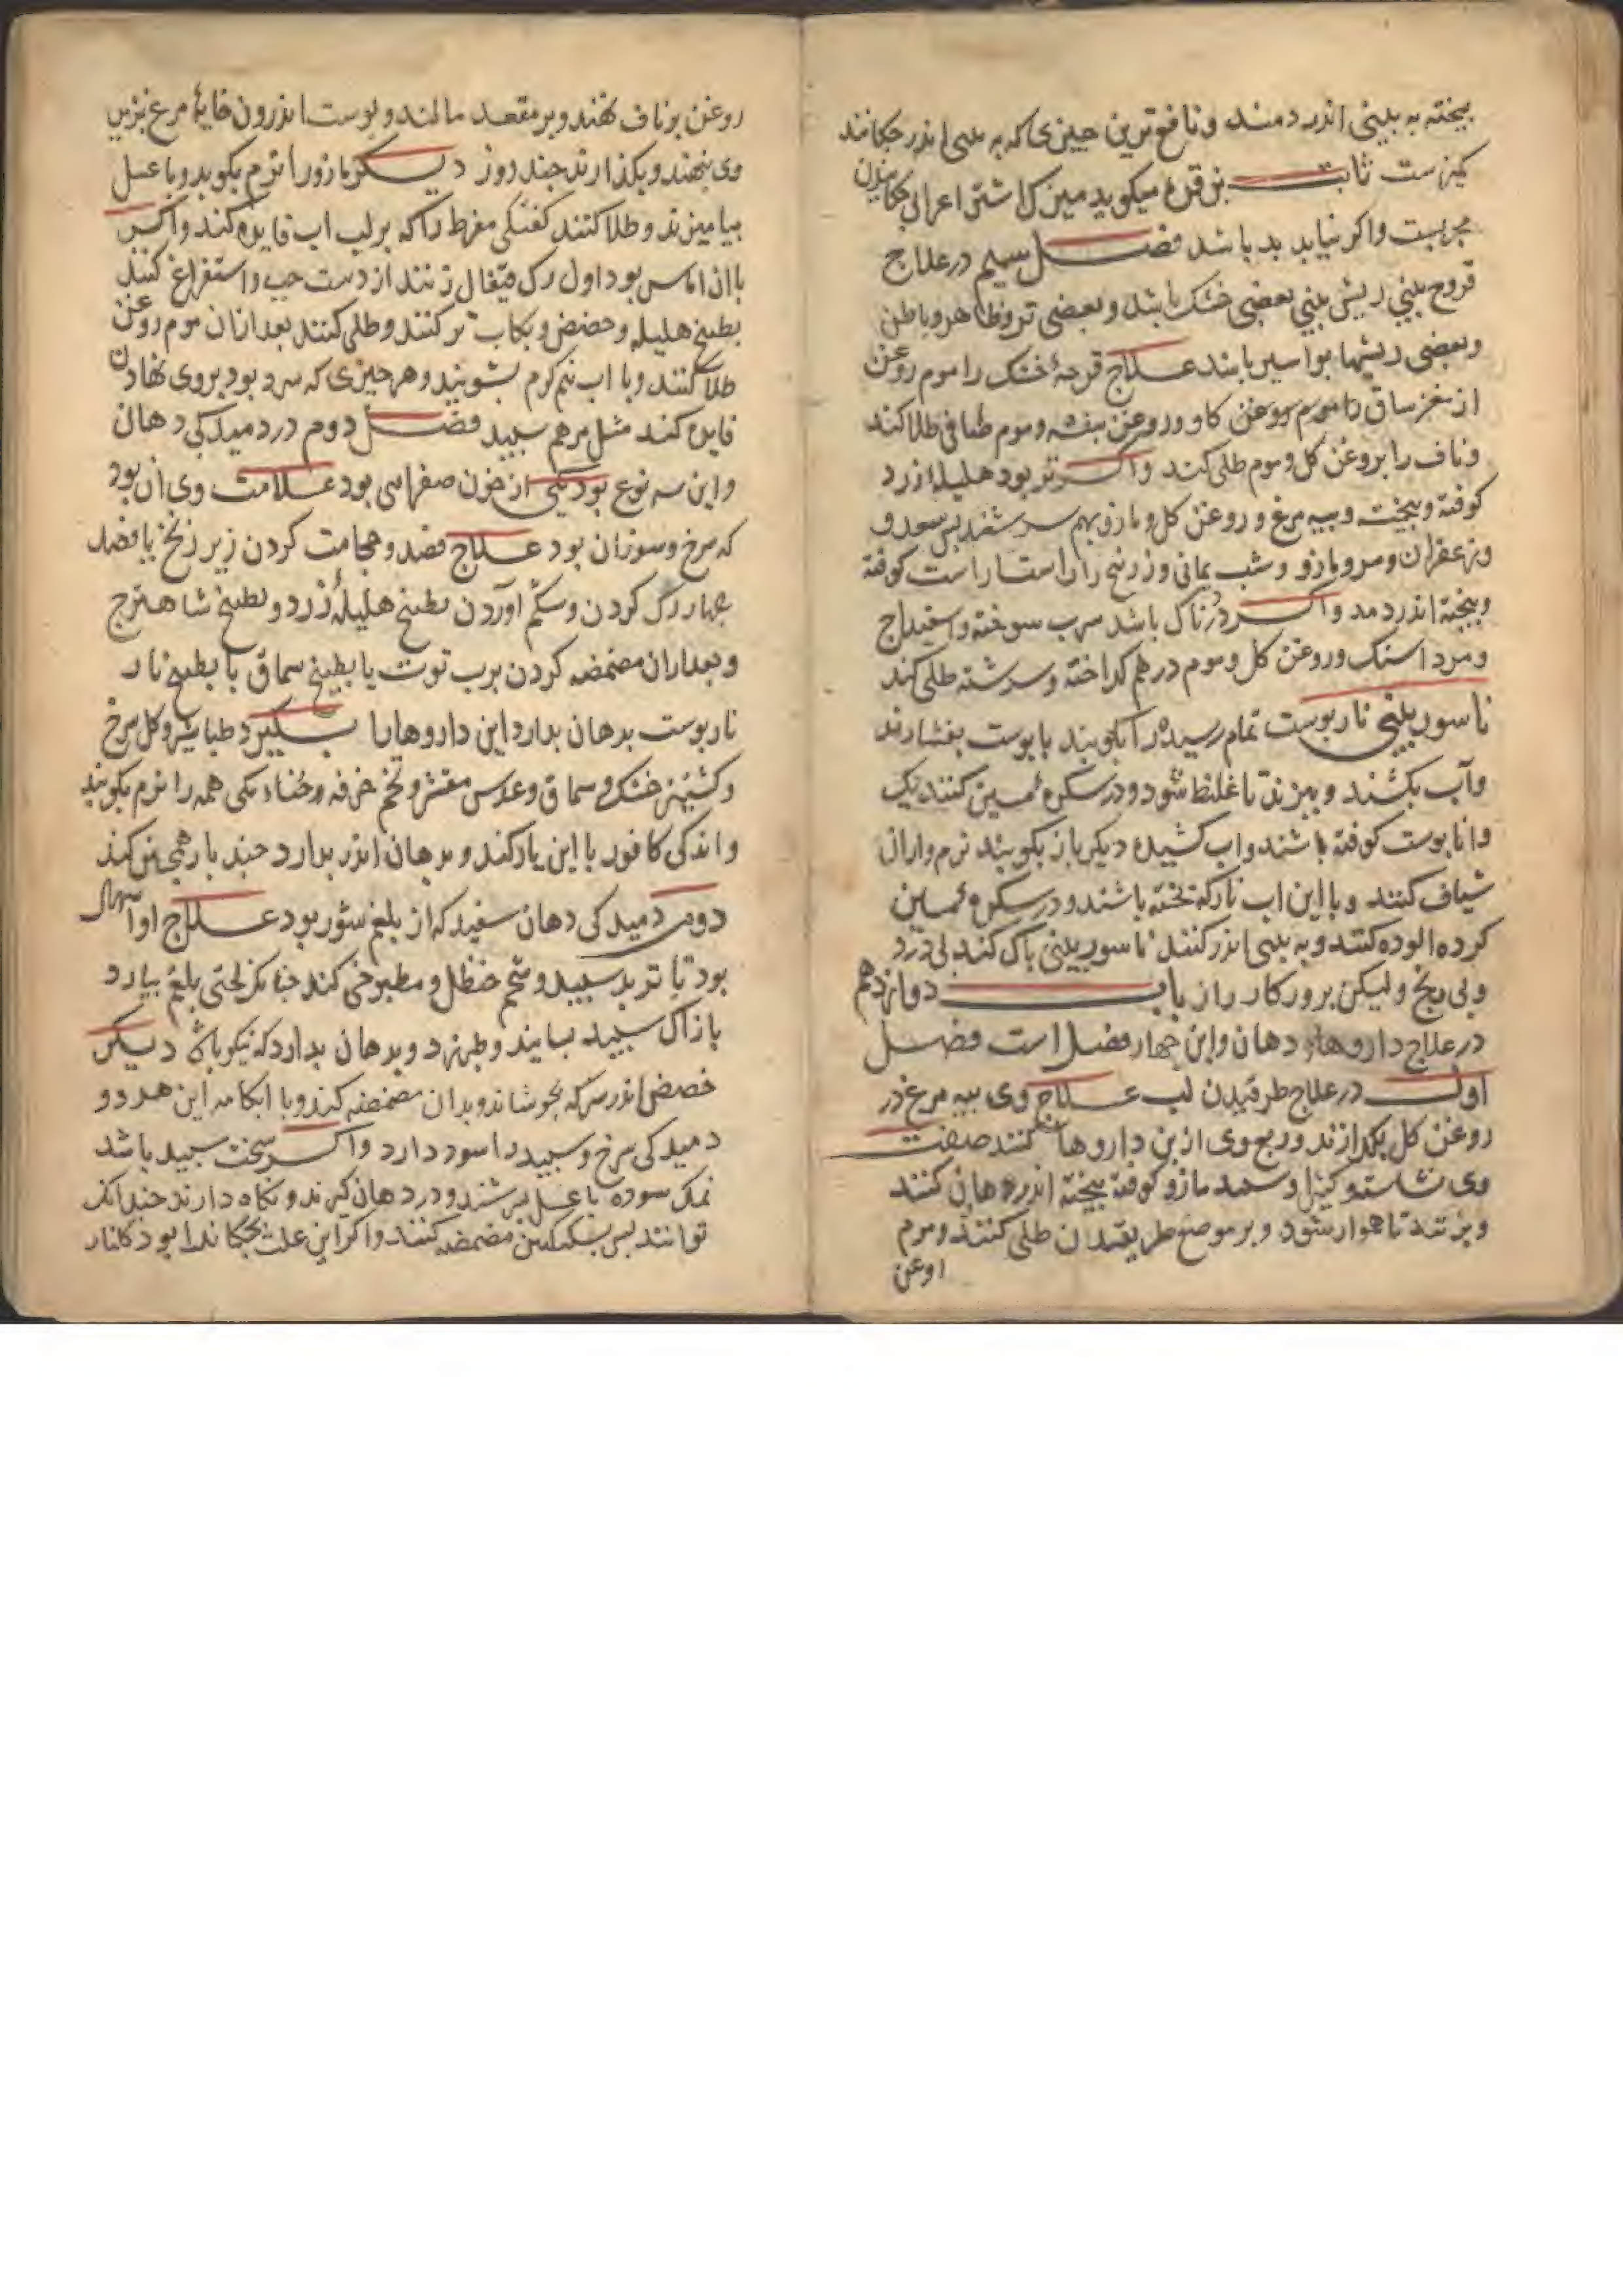 بیخته به بینی اندر دمند و نافع ترین چیزی که به بینی اندر چکانند
کمیزست ثابت بن قره میکوید میزک اشتر اعرابی چکانیدن
مجربست و اکر نیابد بد باشد فصل سیم در علاج
قروح بینی ریش بینی بعضی خشک باشد و بعضی تر و ظاهر و باطن
و بعضی ریشها بواسیر باشد علاج قرحهٔ خشک را موم روغن
از مغز ساق و روغن کاو و روغن بنفشه و موم صافی طلا کند
و ناف را بروغن کل و موم طلی کند و اکر تر بود هلیله زرد
کوفته و بیخته و پیه مرغ و روغن کل و مازو بهم سرشند پس سعد و
و زعفران و مر و مازو و شب یمانی و زرنیخ راستا راست کوفته
و بیخته اندر دمد و اکر دردناک باشد سرب سوخته و اسفیداج
و مرداسنک و روغن کل و موم در هم کداخته و سرشته طلی کند
ناسور بینی نار بوست تمام رسیده را بکوبند با بوست بفشارند
و آب بکشند و بپزند تا غلیظ شود و در سکره مسین کنند نیک
و انا بوست کوفته باشند و اب کشیده دیکر باز بکوبند نرم و ازان
شیاف کنند و با این اب نار که پخته باشند و در سکره مسین
کرده الوده کنند و به بینی اندر کنند ناسور بینی باک کند بی درد
و بی رنج و لیکن بروزکار دراز باب دوازدهم
در علاج داروهاء دهان و این چهار فصل است فصل
اول در علاج طرقیدن لب علاج وی بیه مرغ در
روغن کل بکدازند و ربع وی ازین داروها کنند صفت
وی نشاسته و کتیرا و سپید مازو کوفته بیخته اندر هاون کنند
و بزنند تا هموار شود و بر موضع طریقیدن طلی کنند و موم
روغن
روغن بر ناف نهند و بر مقعد مالند و بوست اندرون خایهٔ مرغ بزیر
وی بنهند و بکذارند چند روز دیکر مازو را نرم بکوبد و با عسل
بیامیزند و طلا کنند کفتکی مفرط را که بر لب اب فایده کند و اکر
با ان اماس بود اول رک قیفال زنند از دست چپ و استفراغ کنند
بطبیخ هلیله و حضض و بکاب تر کنند و طلی کنند بعد ازان موم روغن
طلا کنند و با اب نیم کرم بشویند و هر چیزی که سرد بود بر وی نهادن
فایده کند مثل مرهم سپید فصل دوم در دمیدکی دهان
و این سه نوع بود یکی از خون صفرایی بود علامت وی ان بود
که سرخ و سوزان بود علاج فصد و حجامت کردن زیر زنخ یا فصد
چهار رک کردن و شکم اوردن بطبیخ هلیلهٔ زرد و بطبیخ شاهترج
و بعد ازان مضمضه کردن برب توت یا بطبیخ سماق یا بطبیخ نار
نار بوست بدهان بدارد این داروها را بکیرد طباشیر و کل سرخ
و کشنیز خشک و سماق و عدس مقشر و تخم خرفه و حناء مکی همه را نرم بکوبند
و اندکی کافور با این یار کند و بدهان اندر بدارد چند بار همچنین کند
دوم دمیدکی دهان سفید که از بلغم شور بود علاج او اسهال
بود با تربد سپید و شحم حنظل و مطبوخی کند چنانکه لختی بلغم بیارد
باز اک سپید بسایند و طبرزد و بدهان بدارد که نیکو باشد دیکر
حضض اندر سرکه بجوشاند و بدان مضمضه کنند و با ابکامه این هر دو
دمیدکی سرخ و سپید را سود دارد و اکر سخت سپید باشد
نمک سوده با عسل بسرشند و در دهان کیرند و نکاه دارند چندانک
توانند پس بسکنکبین مضمضه کنند و اکر این علت بچکانرا بود کلنار